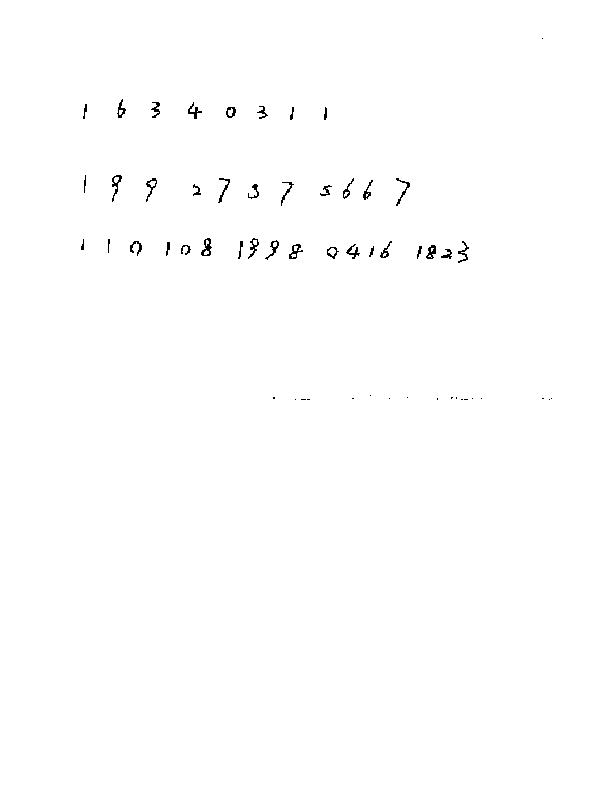 1 6 3 4 0 3 1 1
1 9 9 2 7 3 7 5 6 6 7
1 1 0 1 0 8 1998 0416 1823